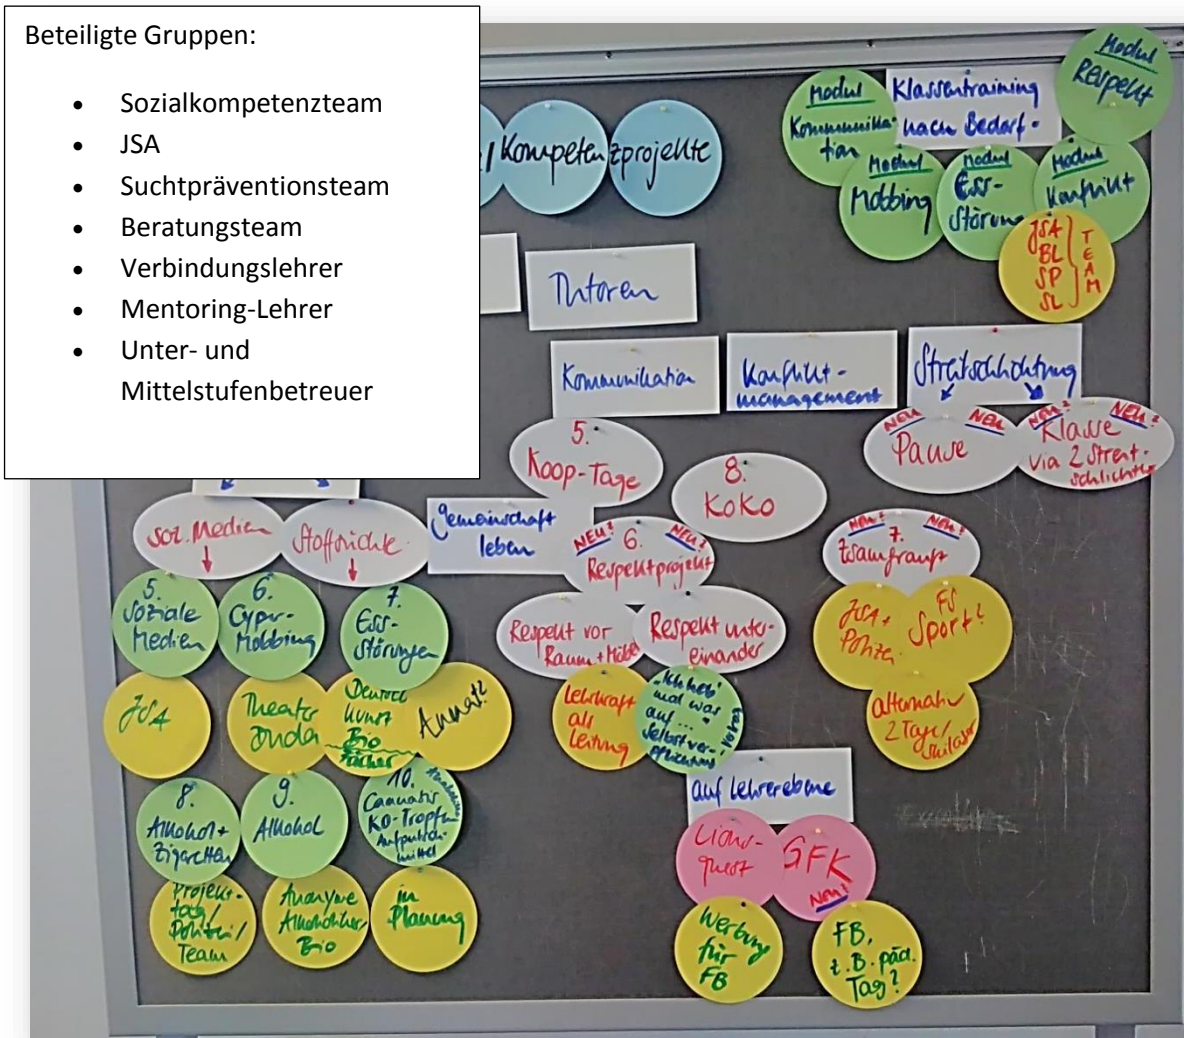 Beteiligte Gruppen:
• Sozialkompetenzteam
• JSA
• Suchtpräventionsteam
• Beratungsteam
• Verbindungslehrer
• Mentoring-Lehrer
• Unter- und
Mittelstufenbetreuer
/Kompetenzprojekte
Modul
Kommunika-
tion
Klassentraining
nach Bedarf.
Modul
Respekt
Modul
Mobbing
Modul
Ess-
Störung
Modul
Konflikt
JSA
BL
SP
SL
TEAM
Tutoren
Kommunikation
Konflikt-
management
Streitschlichtung
NEU? NEU
Pause
NEU? NEU?
Klasse
via 2 Streit-
schlichter
5.
Koop-Tage
8.
KoKo
soz. Medien
Stoffsüchte
Gemeinschaft
leben
NEU? 6. NEU?
Respektprojekt
NEU? NEU?
7.
zsamgrauft
Respekt vor
Raum + Möbel
Respekt unter-
einander
5.
Soziale
Medien
6.
Cyper-
Mobbing
7.
Ess-
Störungen
JSA +
Polizei
FS
Sport?
JSA
Theater
Deutsch
Kunst
Bio
Fächer
Annat?
Lehrkraft
als
Leitung
"Ich heb'
mal was
auf ..."
Selbstver-
pflichtung
Vertrag
alternativ
2 Tage/
8.
Alkohol +
Zigaretten
9.
Alkohol
10.
Cannabis
KO-Tropfen
Aufputsch-
mittel
auf Lehrerebene
Projekt-
tag/
Polizei/
Team
Anonyme
Alkoholiker/
Bio
in
Planung
Lions-
quest
GFK
Neu?
Werbung
für
FB
FB,
z.B. päd.
Tag?